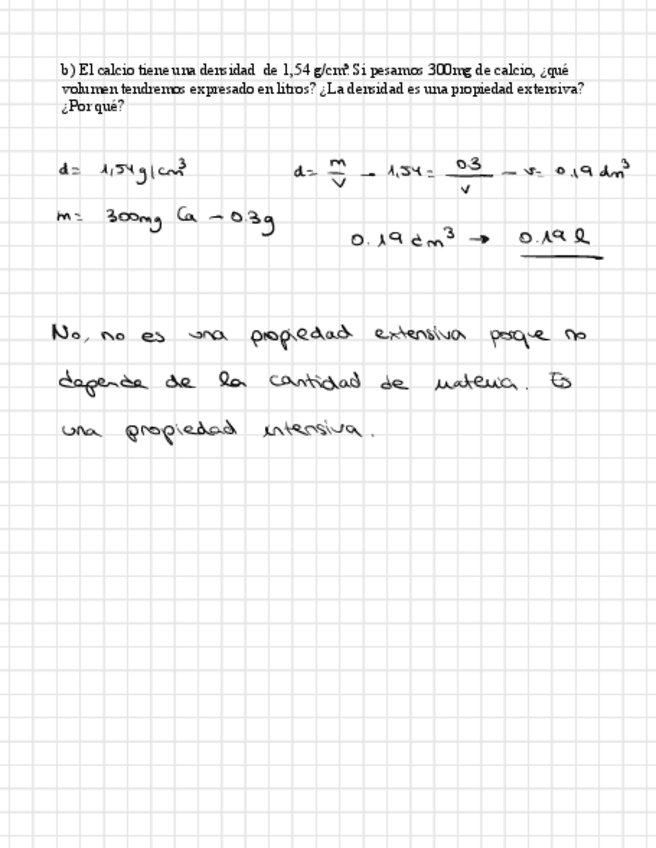 b) El calcio tiene una densidad de 1,54 g/cm³. Si pesamos 300mg de calcio, ¿qué
volumen tendremos expresado en litros? ¿La densidad es una propiedad extensiva?
¿Por qué?
d= 1,54g/cm³ d= m/V - 1,54= 0.3/v - v= 0.19 dm³
m= 300mg Ca - 0.3g
0.19 dm³ → 0.19 l
No, no es una propiedad extensiva porque no
depende de la cantidad de materia. Es
una propiedad intensiva.